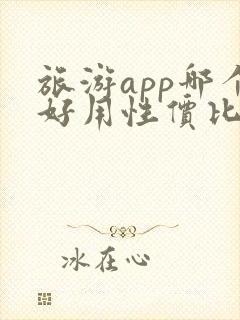 旅游app哪个
好用性價比
冰在心